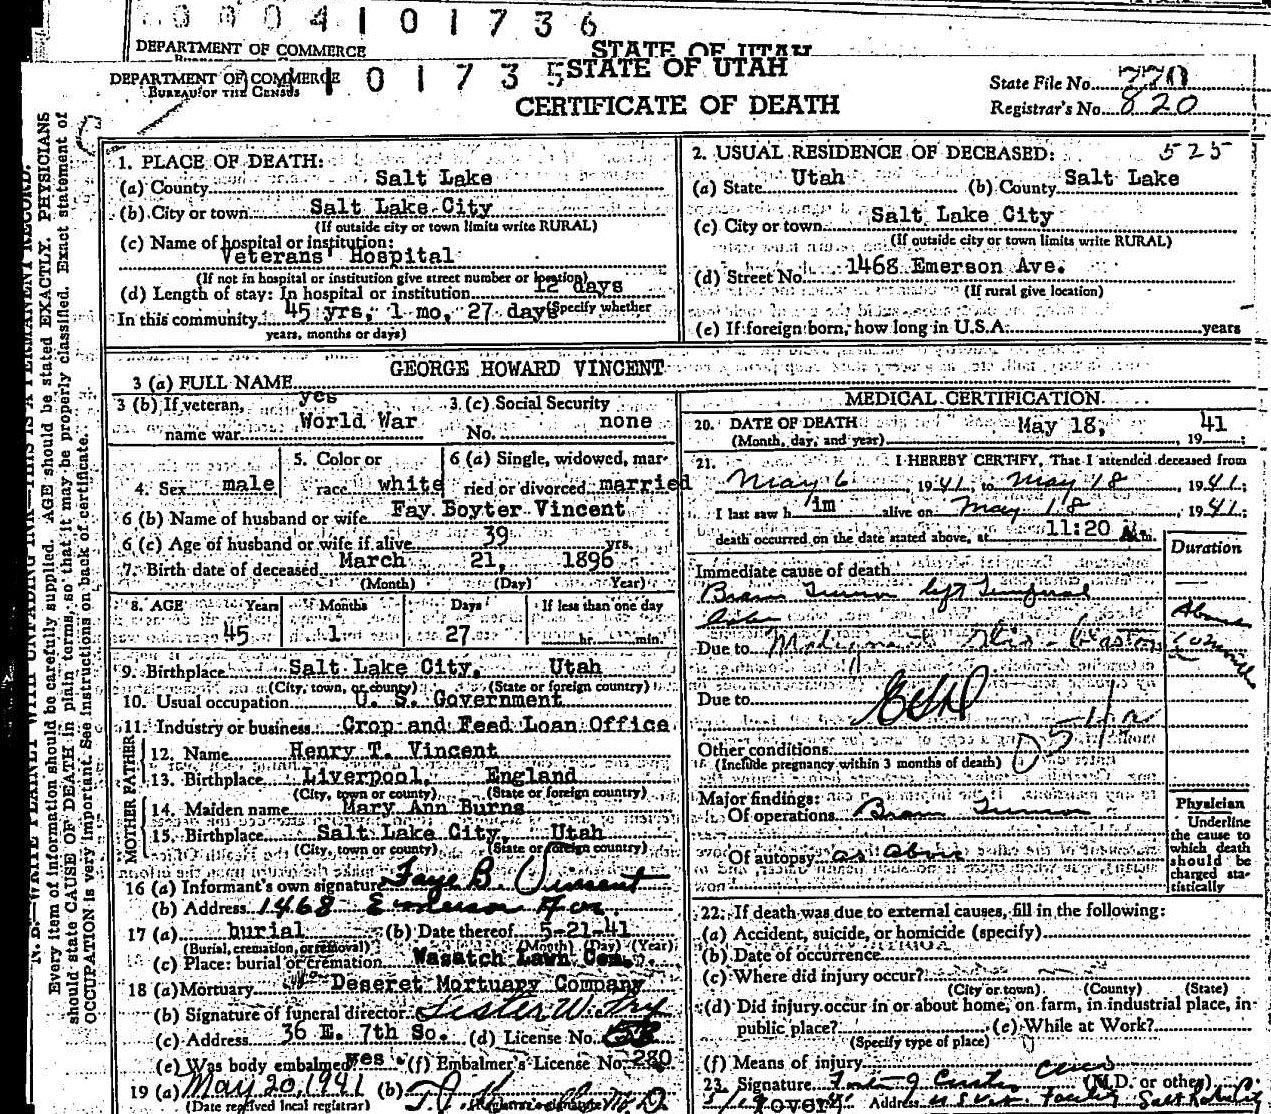 0004101736
DEPARTMENT OF COMMERCE
STATE OF UTAH
DEPARTMENT OF COMMERCE
BUREAU OF THE CENSUS
4101735
STATE OF UTAH
CERTIFICATE OF DEATH
State File No. 770
Registrar's No. 820
N. B.—WRITE PLAINLY WITH UNFADING INK—THIS IS A PERMANENT RECORD.
Every item of information should be carefully supplied. AGE should be stated EXACTLY. PHYSICIANS
should state CAUSE OF DEATH in plain terms, so that it may be properly classified. Exact statement of
OCCUPATION is very important. See instructions on back of certificate.
1. PLACE OF DEATH:
(a) County Salt Lake
(b) City or town Salt Lake City
(If outside city or town limits write RURAL)
(c) Name of hospital or institution:
Veterans' Hospital
(If not in hospital or institution give street number or location)
(d) Length of stay: In hospital or institution 12 days
In this community 45 yrs, 1 mo, 27 days (Specify whether
years, months or days)
2. USUAL RESIDENCE OF DECEASED: 525
(a) State Utah (b) County Salt Lake
(c) City or town Salt Lake City
(If outside city or town limits write RURAL)
(d) Street No. 1468 Emerson Ave.
(If rural give location)
(e) If foreign born, how long in U.S.A. years
3 (a) FULL NAME GEORGE HOWARD VINCENT
3 (b) If veteran, yes
name war World War
3. (c) Social Security
No. none
4. Sex male
5. Color or
race white
6 (a) Single, widowed, mar-
ried or divorced married
6 (b) Name of husband or wife Fay Boyter Vincent
6 (c) Age of husband or wife if alive 39 yrs.
7. Birth date of deceased March 21, 1896
(Month) (Day) Year)
8. AGE Years Months Days If less than one day
45 1 27 hr. min.
9. Birthplace Salt Lake City, Utah
(City, town, or county) (State or foreign country)
10. Usual occupation U. S. Government
11. Industry or business Crop and Feed Loan Office
FATHER
12. Name Henry T. Vincent
13. Birthplace Liverpool, England
(City, town or county) (State or foreign country)
MOTHER
14. Maiden name Mary Ann Burns
15. Birthplace Salt Lake City, Utah
(City, town or county) (State or foreign country)
16 (a) Informant's own signature Faye B. Vincent
(b) Address 1468 Emerson Ave.
17 (a) burial (b) Date thereof 5-21-41
(Burial, cremation, or removal) (Month) (Day) (Year)
(c) Place: burial or cremation Wasatch Lawn Cem.
18 (a) Mortuary Deseret Mortuary Company
(b) Signature of funeral director Lester W. Fry
(c) Address 36 E. 7th So. (d) License No.
(e) Was body embalmed yes (f) Embalmer's License No. 280
19 (a) May 20, 1941 (b)
(Date received local registrar) (Registrar's signature)
MEDICAL CERTIFICATION
20. DATE OF DEATH May 18, 41
(Month, day, and year) , 19
21. I HEREBY CERTIFY, That I attended deceased from
May 6, 1941, to May 18, 1941;
I last saw him alive on May 18, 1941;
death occurred on the date stated above, at 11:20 A.m.
Duration
Immediate cause of death
Brain Tumor left Temporal
lobe
Due to Malignant
Due to
Other conditions
(Include pregnancy within 3 months of death)
Major findings:
Of operations Brain Tumor
Of autopsy as above
Physician
Underline
the cause to
which death
should be
charged sta-
tistically
22. If death was due to external causes, fill in the following:
(a) Accident, suicide, or homicide (specify)
(b) Date of occurrence
(c) Where did injury occur?
(City or town) (County) (State)
(d) Did injury occur in or about home, on farm, in industrial place, in
public place? (e) While at Work?
(Specify type of place)
(f) Means of injury
23. Signature (M.D. or other)
(over) Address U.S. Vet. Facility Salt Lake